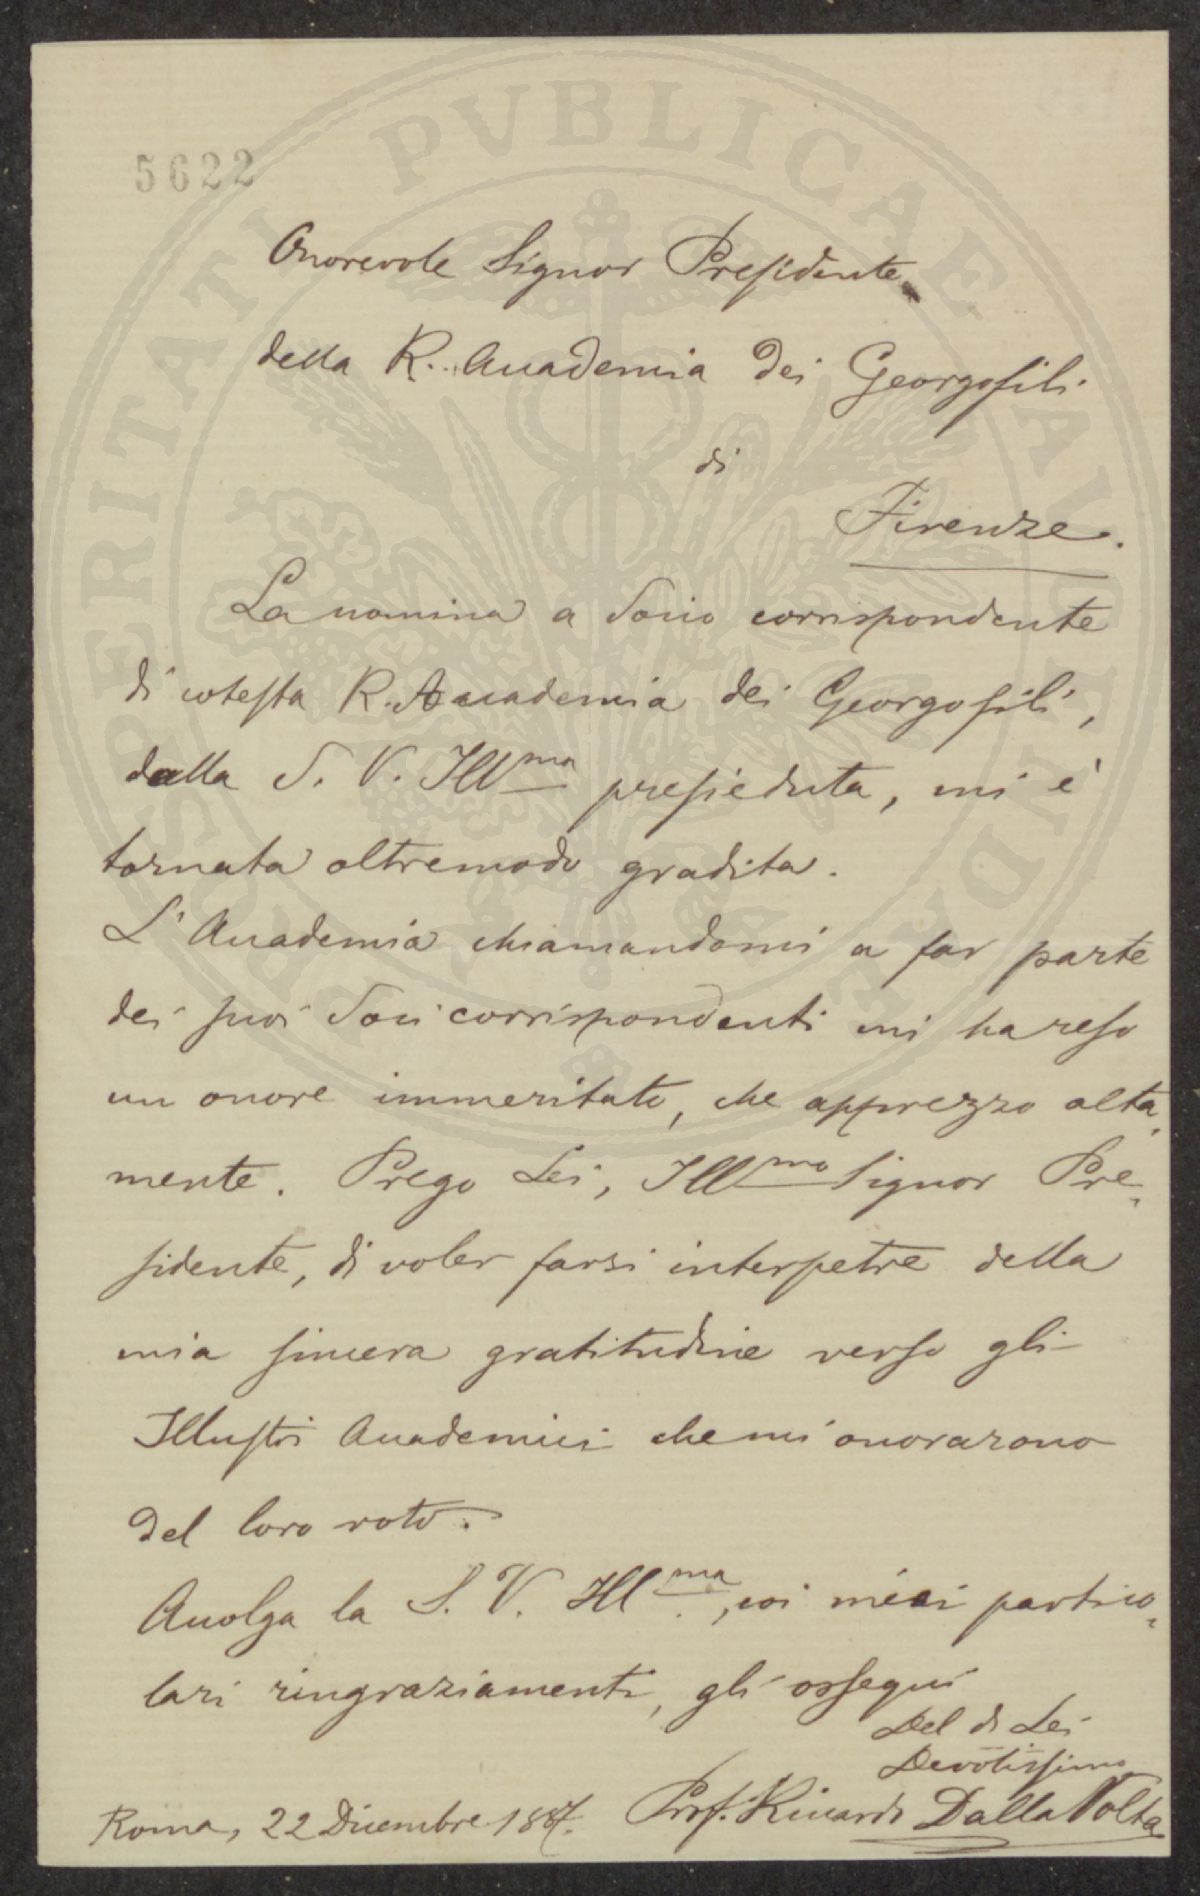 PROSPERITATI PVBLICAE AVGENDAE
5622
Onorevole Signor Presidente
della R. Accademia dei Georgofili
di
Firenze.
La nomina a Socio corrispondente
di cotesta R. Accademia dei Georgofili,
dalla S. V. Ill.ma presieduta, mi è
tornata oltremodo gradita.
L'Accademia chiamandomi a far parte
dei suoi Soci corrispondenti mi ha reso
un onore immeritato, che apprezzo alta-
mente. Prego Lei, Ill.mo Signor Pre-
sidente, di voler farsi interpetre della
mia sincera gratitudine verso gli
Illustri Accademici che mi onorarono
del loro voto.
Accolga la S. V. Ill.ma, coi miei partico-
lari ringraziamenti, gli ossequi
Del di Lei
Devotissimo
Prof. Riccardo Dalla Volta
Roma, 22 Dicembre 1887.